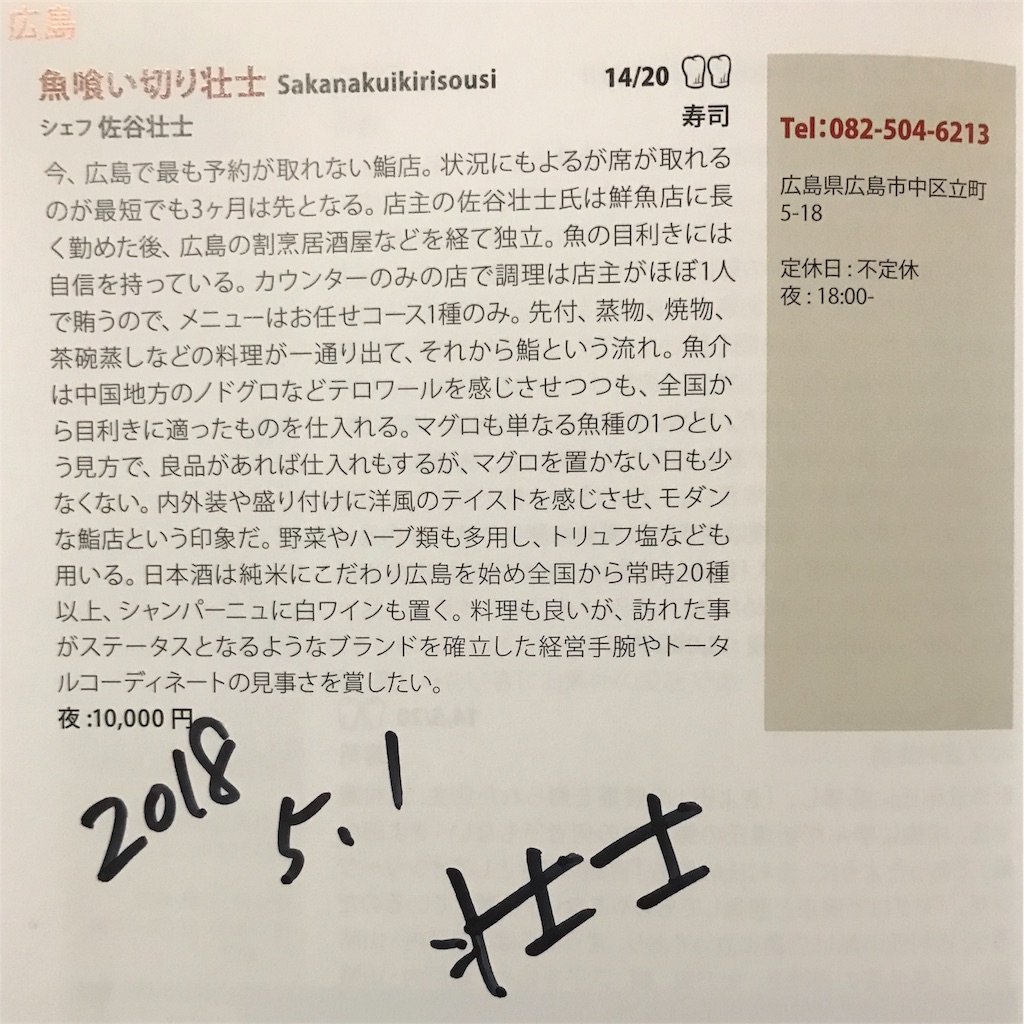 広島
魚喰い切り壮士 Sakanakuikirisousi 14/20
シェフ 佐谷壮士 寿司
今、広島で最も予約が取れない鮨店。状況にもよるが席が取れる
のが最短でも3ヶ月は先となる。店主の佐谷壮士氏は鮮魚店に長
く勤めた後、広島の割烹居酒屋などを経て独立。魚の目利きには
自信を持っている。カウンターのみの店で調理は店主がほぼ1人
で賄うので、メニューはお任せコース1種のみ。先付、蒸物、焼物、
茶碗蒸しなどの料理が一通り出て、それから鮨という流れ。魚介
は中国地方のノドグロなどテロワールを感じさせつつも、全国か
ら目利きに適ったものを仕入れる。マグロも単なる魚種の1つとい
う見方で、良品があれば仕入れもするが、マグロを置かない日も少
なくない。内外装や盛り付けに洋風のテイストを感じさせ、モダン
な鮨店という印象だ。野菜やハーブ類も多用し、トリュフ塩なども
用いる。日本酒は純米にこだわり広島を始め全国から常時20種
以上、シャンパーニュに白ワインも置く。料理も良いが、訪れた事
がステータスとなるようなブランドを確立した経営手腕やトータ
ルコーディネートの見事さを賞したい。
夜:10,000円
Tel:082-504-6213
広島県広島市中区立町
5-18
定休日:不定休
夜:18:00-
2018
5.1
壮士